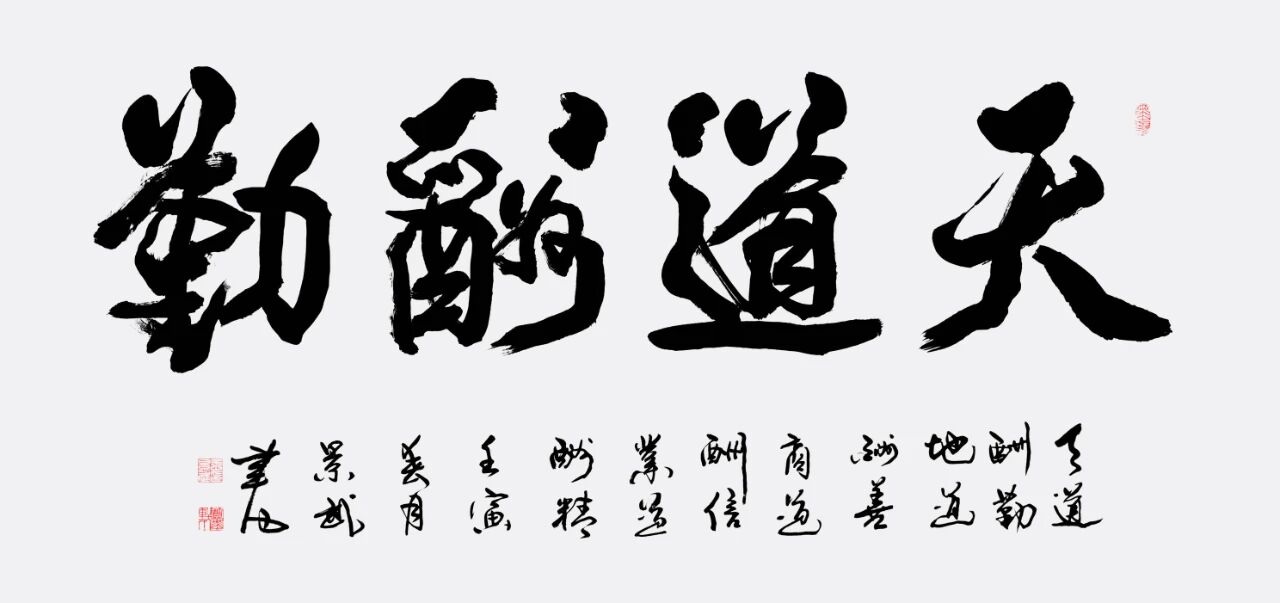 天道酬勤
天道
酬勤
地道
酬善
商道
酬信
業道
酬精
壬寅
葵月
景彬